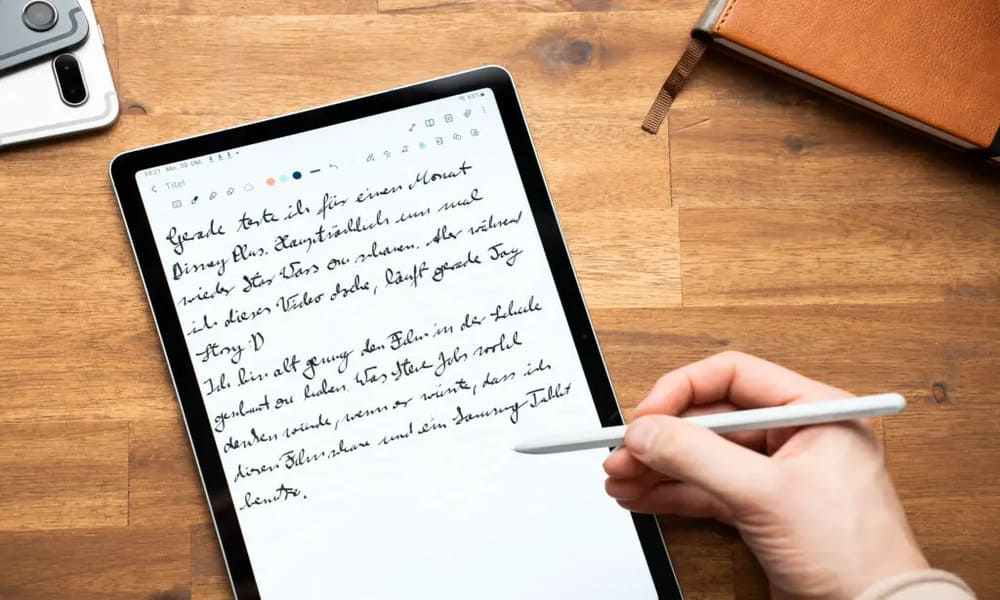 19:21 Mo. 30. Okt.
Titel
Gerade teste ich für einen Monat
Disney Plus. Hauptsächlich um mal
wieder Star Wars zu schauen. Aber während
ich dieses Video drehe, läuft gerade Toy
Story :D
Ich bin alt genug den Film in der Schule
geschaut zu haben. Was Steve Jobs wohl
denken würde, wenn er wüsste, dass ich
diesen Film schaue und ein Samsung Tablet
benutze.